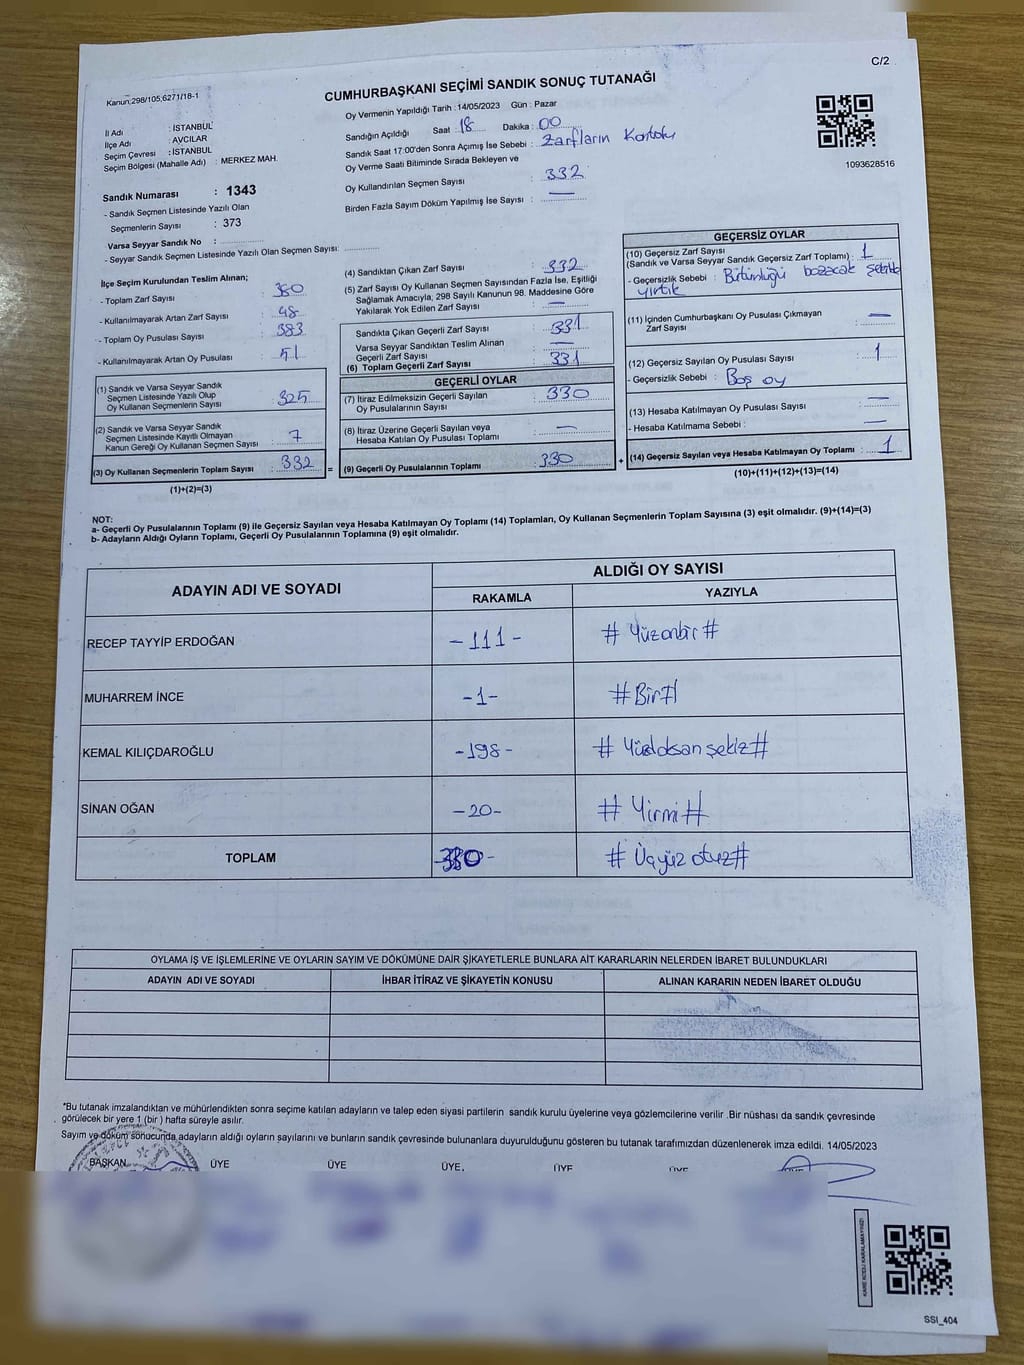 C/2
Kanun:298/105,6271/18-1
CUMHURBAŞKANI SEÇİMİ SANDIK SONUÇ TUTANAĞI
Oy Vermenin Yapıldığı Tarih : 14/05/2023 Gün : Pazar
İl Adı : İSTANBUL
İlçe Adı : AVCILAR
Seçim Çevresi : İSTANBUL
Seçim Bölgesi (Mahalle Adı) : MERKEZ MAH.
Sandık Numarası : 1343
- Sandık Seçmen Listesinde Yazılı Olan
Seçmenlerin Sayısı : 373
Varsa Seyyar Sandık No :
- Seyyar Sandık Seçmen Listesinde Yazılı Olan Seçmen Sayısı:
Sandığın Açıldığı Saat : 18 Dakika : 00
Sandık Saat 17:00'den Sonra Açımış İse Sebebi : Zarfların Kontolu
Oy Verme Saati Bitiminde Sırada Bekleyen ve
Oy Kullandırılan Seçmen Sayısı : 332
Birden Fazla Sayım Döküm Yapılmış İse Sayısı : —
1093628516
İlçe Seçim Kurulundan Teslim Alınan;
- Toplam Zarf Sayısı : 380
- Kullanılmayarak Artan Zarf Sayısı : 48
- Toplam Oy Pusulası Sayısı : 383
- Kullanılmayarak Artan Oy Pusulası : 51
(1) Sandık ve Varsa Seyyar Sandık
Seçmen Listesinde Yazılı Olup
Oy Kullanan Seçmenlerin Sayısı : 325
(2) Sandık ve Varsa Seyyar Sandık
Seçmen Listesinde Kayıtlı Olmayan
Kanun Gereği Oy Kullanan Seçmen Sayısı : 7
(3) Oy Kullanan Seçmenlerin Toplam Sayısı : 332
(1)+(2)=(3)
=
(4) Sandıktan Çıkan Zarf Sayısı : 332
(5) Zarf Sayısı Oy Kullanan Seçmen Sayısından Fazla İse, Eşitliği
Sağlamak Amacıyla, 298 Sayılı Kanunun 98. Maddesine Göre
Yakılarak Yok Edilen Zarf Sayısı : —
Sandıkta Çıkan Geçerli Zarf Sayısı : 331
Varsa Seyyar Sandıktan Teslim Alınan
Geçerli Zarf Sayısı : —
(6) Toplam Geçerli Zarf Sayısı : 331
GEÇERLİ OYLAR
(7) İtiraz Edilmeksizin Geçerli Sayılan
Oy Pusulalarının Sayısı : 330
(8) İtiraz Üzerine Geçerli Sayılan veya
Hesaba Katılan Oy Pusulası Toplamı : —
(9) Geçerli Oy Pusulalarının Toplamı : 330
+
GEÇERSİZ OYLAR
(10) Geçersiz Zarf Sayısı
(Sandık ve Varsa Seyyar Sandık Geçersiz Zarf Toplamı) : 1
- Geçersizlik Sebebi : Bütünlüğü bozacak şekilde
yırtık
(11) İçinden Cumhurbaşkanı Oy Pusulası Çıkmayan
Zarf Sayısı : —
(12) Geçersiz Sayılan Oy Pusulası Sayısı : 1
- Geçersizlik Sebebi : Boş oy
(13) Hesaba Katılmayan Oy Pusulası Sayısı : —
- Hesaba Katılmama Sebebi : —
(14) Geçersiz Sayılan veya Hesaba Katılmayan Oy Toplamı : 1
(10)+(11)+(12)+(13)=(14)
NOT:
a- Geçerli Oy Pusulalarının Toplamı (9) ile Geçersiz Sayılan veya Hesaba Katılmayan Oy Toplamı (14) Toplamları, Oy Kullanan Seçmenlerin Toplam Sayısına (3) eşit olmalıdır. (9)+(14)=(3)
b- Adayların Aldığı Oyların Toplamı, Geçerli Oy Pusulalarının Toplamına (9) eşit olmalıdır.
ADAYIN ADI VE SOYADI
ALDIĞI OY SAYISI
RAKAMLA YAZIYLA
RECEP TAYYİP ERDOĞAN -111- # Yüzonbir #
MUHARREM İNCE -1- # Bir #
KEMAL KILIÇDAROĞLU -198- # Yüzdoksan şekiz #
SİNAN OĞAN -20- # Yirmi #
TOPLAM -330- # Üçyüz otuz #
OYLAMA İŞ VE İŞLEMLERİNE VE OYLARIN SAYIM VE DÖKÜMÜNE DAİR ŞİKAYETLERLE BUNLARA AİT KARARLARIN NELERDEN İBARET BULUNDUKLARI
ADAYIN ADI VE SOYADI İHBAR İTİRAZ VE ŞİKAYETİN KONUSU ALINAN KARARIN NEDEN İBARET OLDUĞU
*Bu tutanak imzalandıktan ve mühürlendikten sonra seçime katılan adayların ve talep eden siyasi partilerin sandık kurulu üyelerine veya gözlemcilerine verilir .Bir nüshası da sandık çevresinde
görülecek bir yere 1 (bir ) hafta süreyle asılır.
Sayım ve döküm sonucunda adayların aldığı oyların sayılarını ve bunların sandık çevresinde bulunanlara duyurulduğunu gösteren bu tutanak tarafımızdan düzenlenerek imza edildi. 14/05/2023
BAŞKAN ÜYE ÜYE ÜYE ÜYE ÜYE ÜYE
KARE KODU KARALAMAYINIZ!
SSI_404